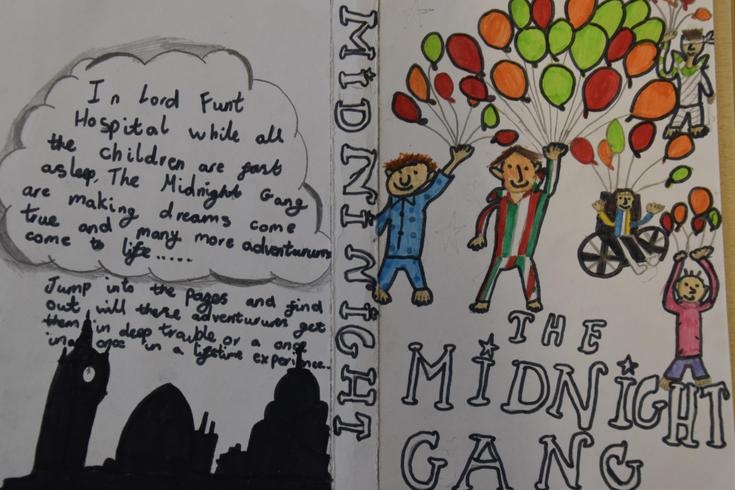 In Lord Funt
Hospital while all
the children are fast
asleep, The Midnight Gang
are making dreams come
true and many more adventurums
come to life.....
Jump into the pages and find
out will these adventurums get
them in deep trouble or a once
in a lifetime experience..
MIDNIGHT
THE
MIDNIGHT
GANG